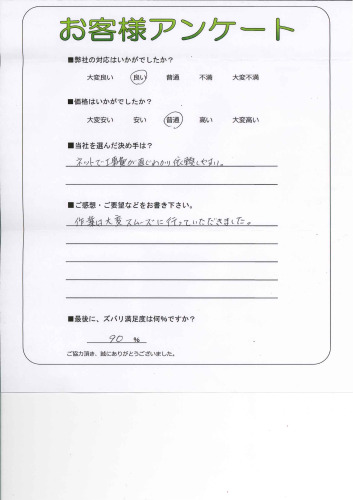 お客様アンケート
■弊社の対応はいかがでしたか?
大変良い 良い 普通 不満 大変不満
■価格はいかがでしたか?
大変安い 安い 普通 高い 大変高い
■当社を選んだ決め手は?
ネットで工事費が
■ご感想・ご要望などをお書き下さい。
作業は大変スムーズに行っていただきました。
■最後に、ズバリ満足度は何%ですか?
90 %
ご協力頂き、誠にありがとうございました。